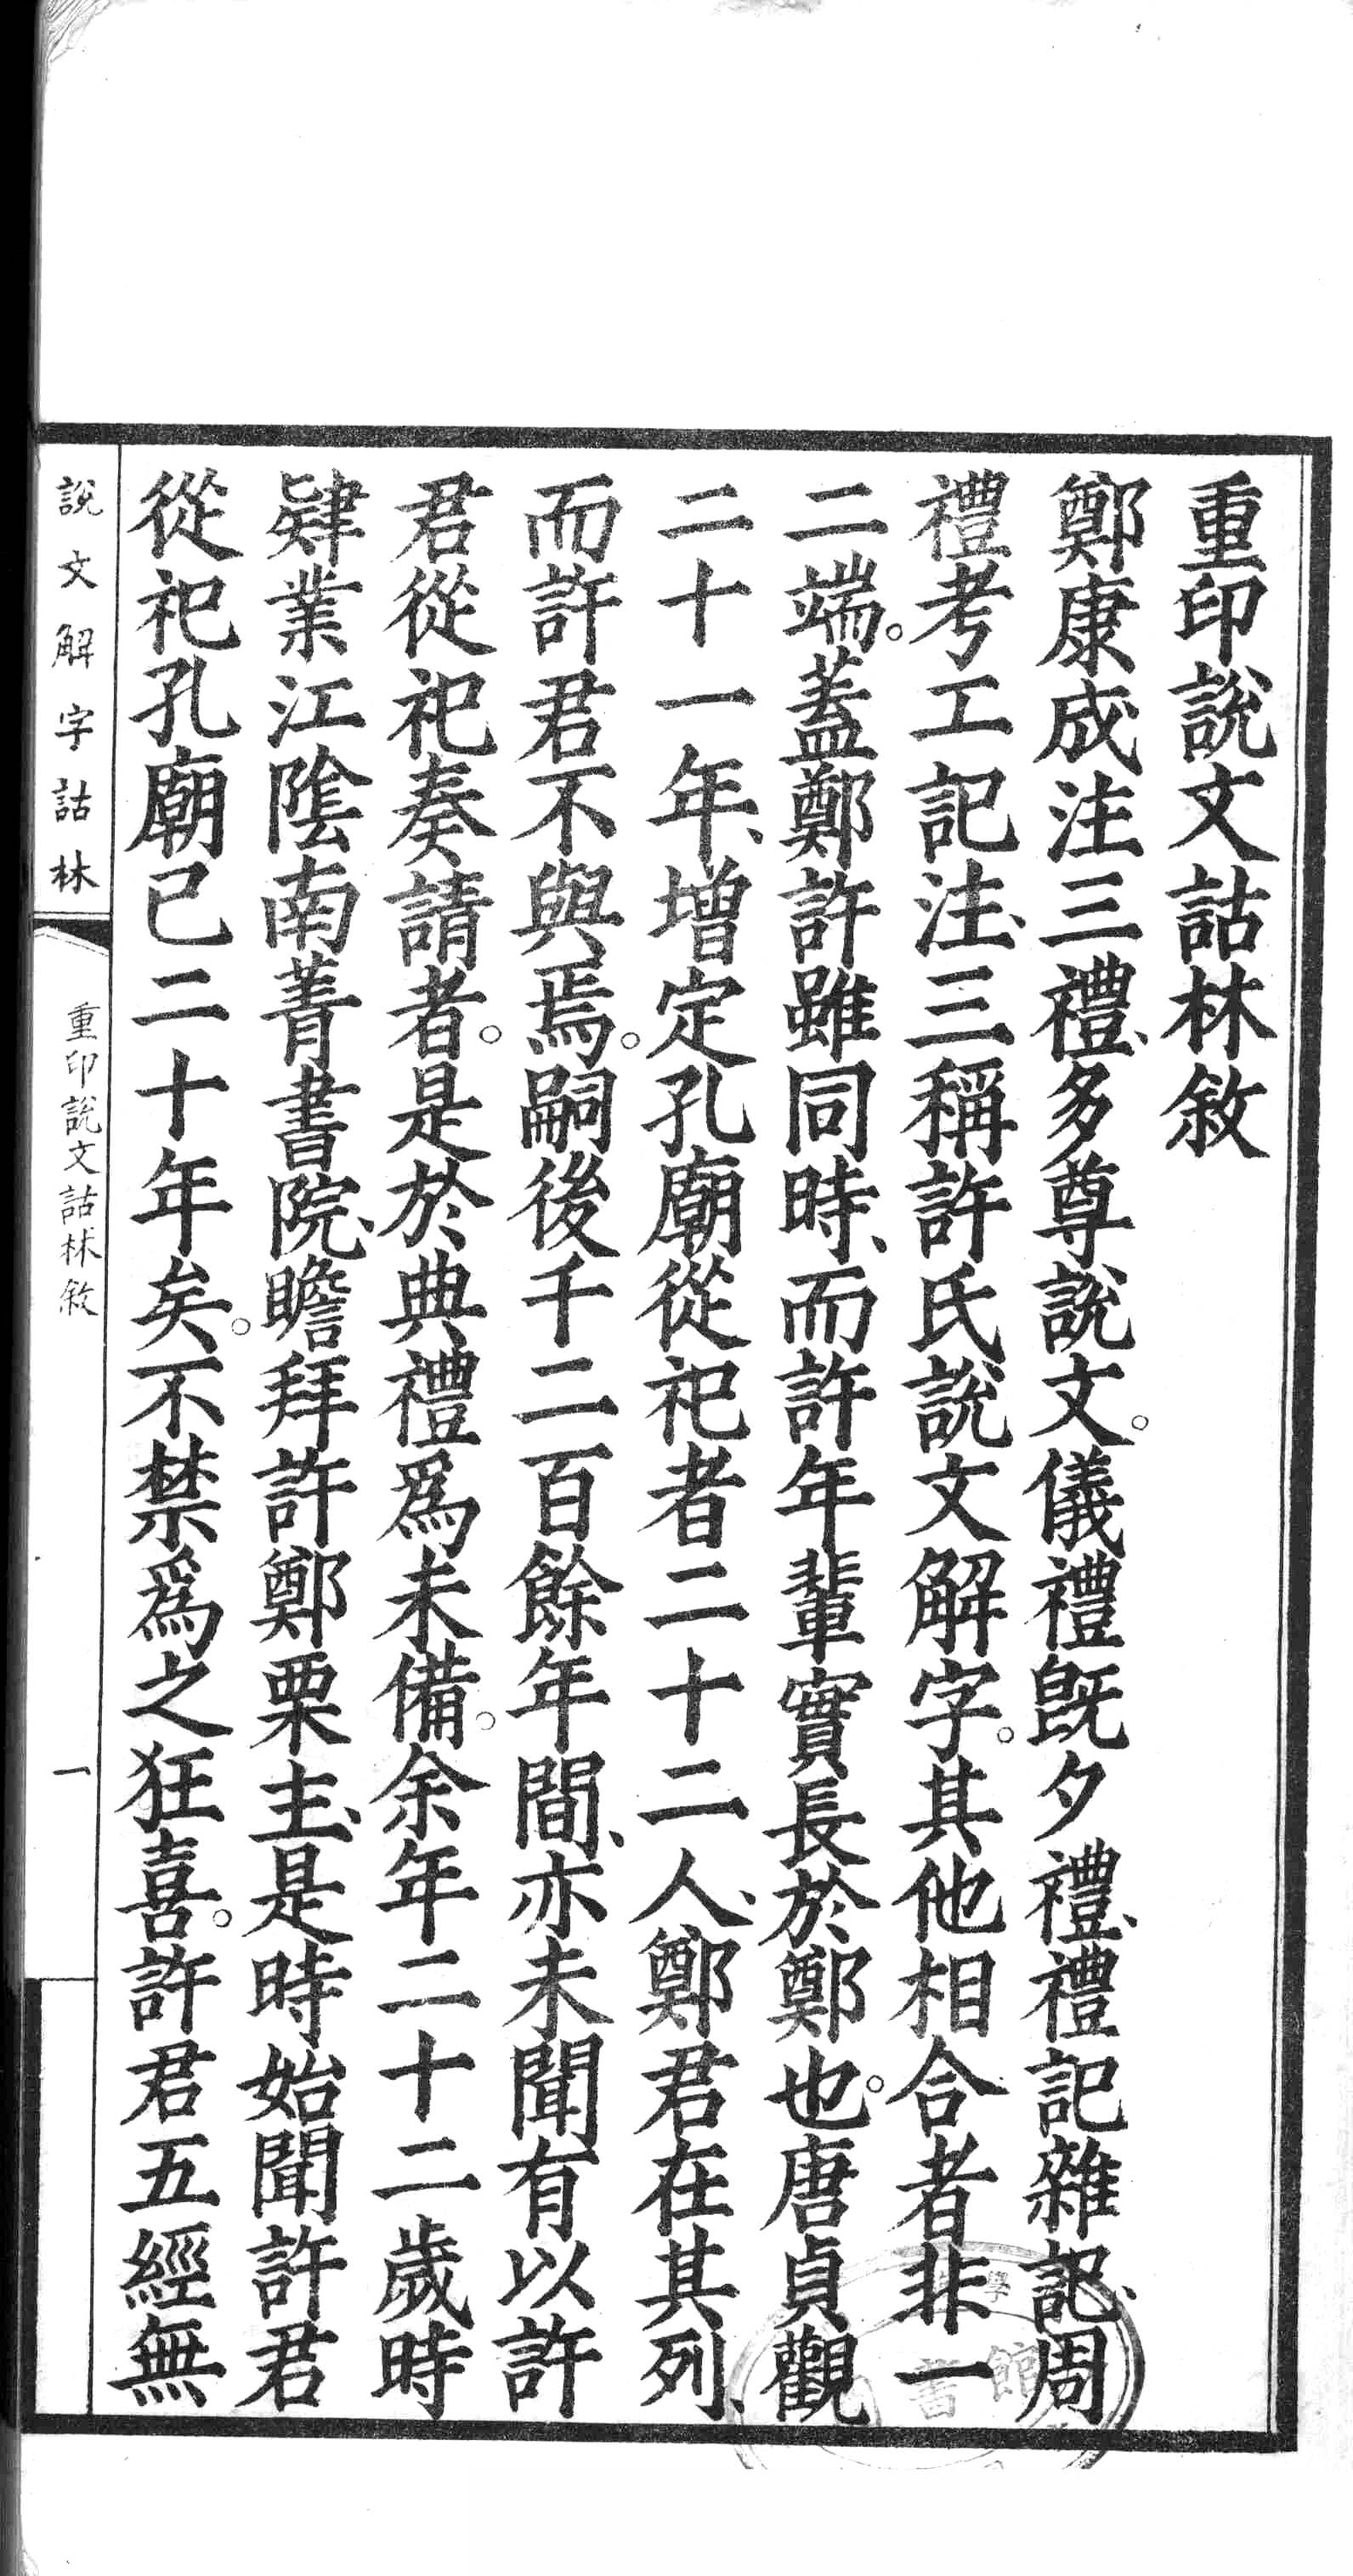 重印說文詁林敘
鄭康成注三禮、多尊說文。儀禮旣夕禮、禮記雜記、周
禮考工記注、三稱許氏說文解字。其他相合者非一
二端。蓋鄭許雖同時、而許年輩實長於鄭也。唐貞觀
二十一年、增定孔廟從祀者二十二人、鄭君在其列、
而許君不與焉。嗣後千二百餘年間、亦未聞有以許
君從祀奏請者。是於典禮爲未備。余年二十二歲時
肄業江陰南菁書院、瞻拜許鄭栗主、是時始聞許君
從祀孔廟已二十年矣。不禁爲之狂喜。許君五經無
說文解字詁林
重印說文詁林敘
一
學
書館